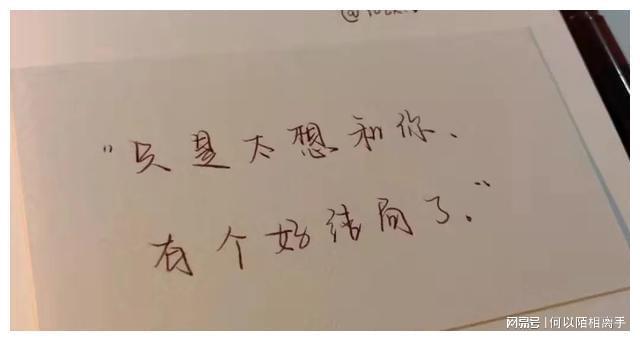 "只是太想和你、
有个好结局了."
网易号 | 何以陌相离手